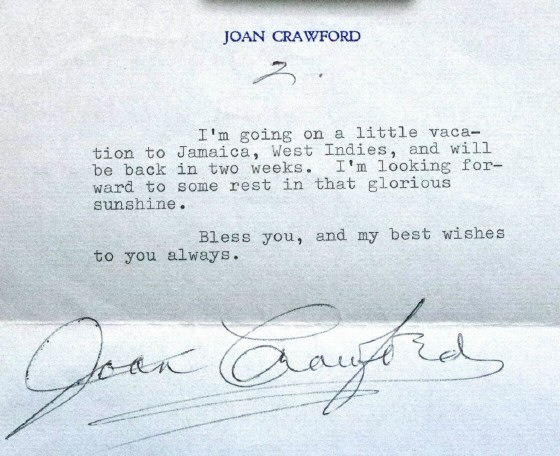 JOAN CRAWFORD
2.
I'm going on a little vaca-
tion to Jamaica, West Indies, and will
be back in two weeks. I'm looking for-
ward to some rest in that glorious
sunshine.
Bless you, and my best wishes
to you always.
Joan Crawford